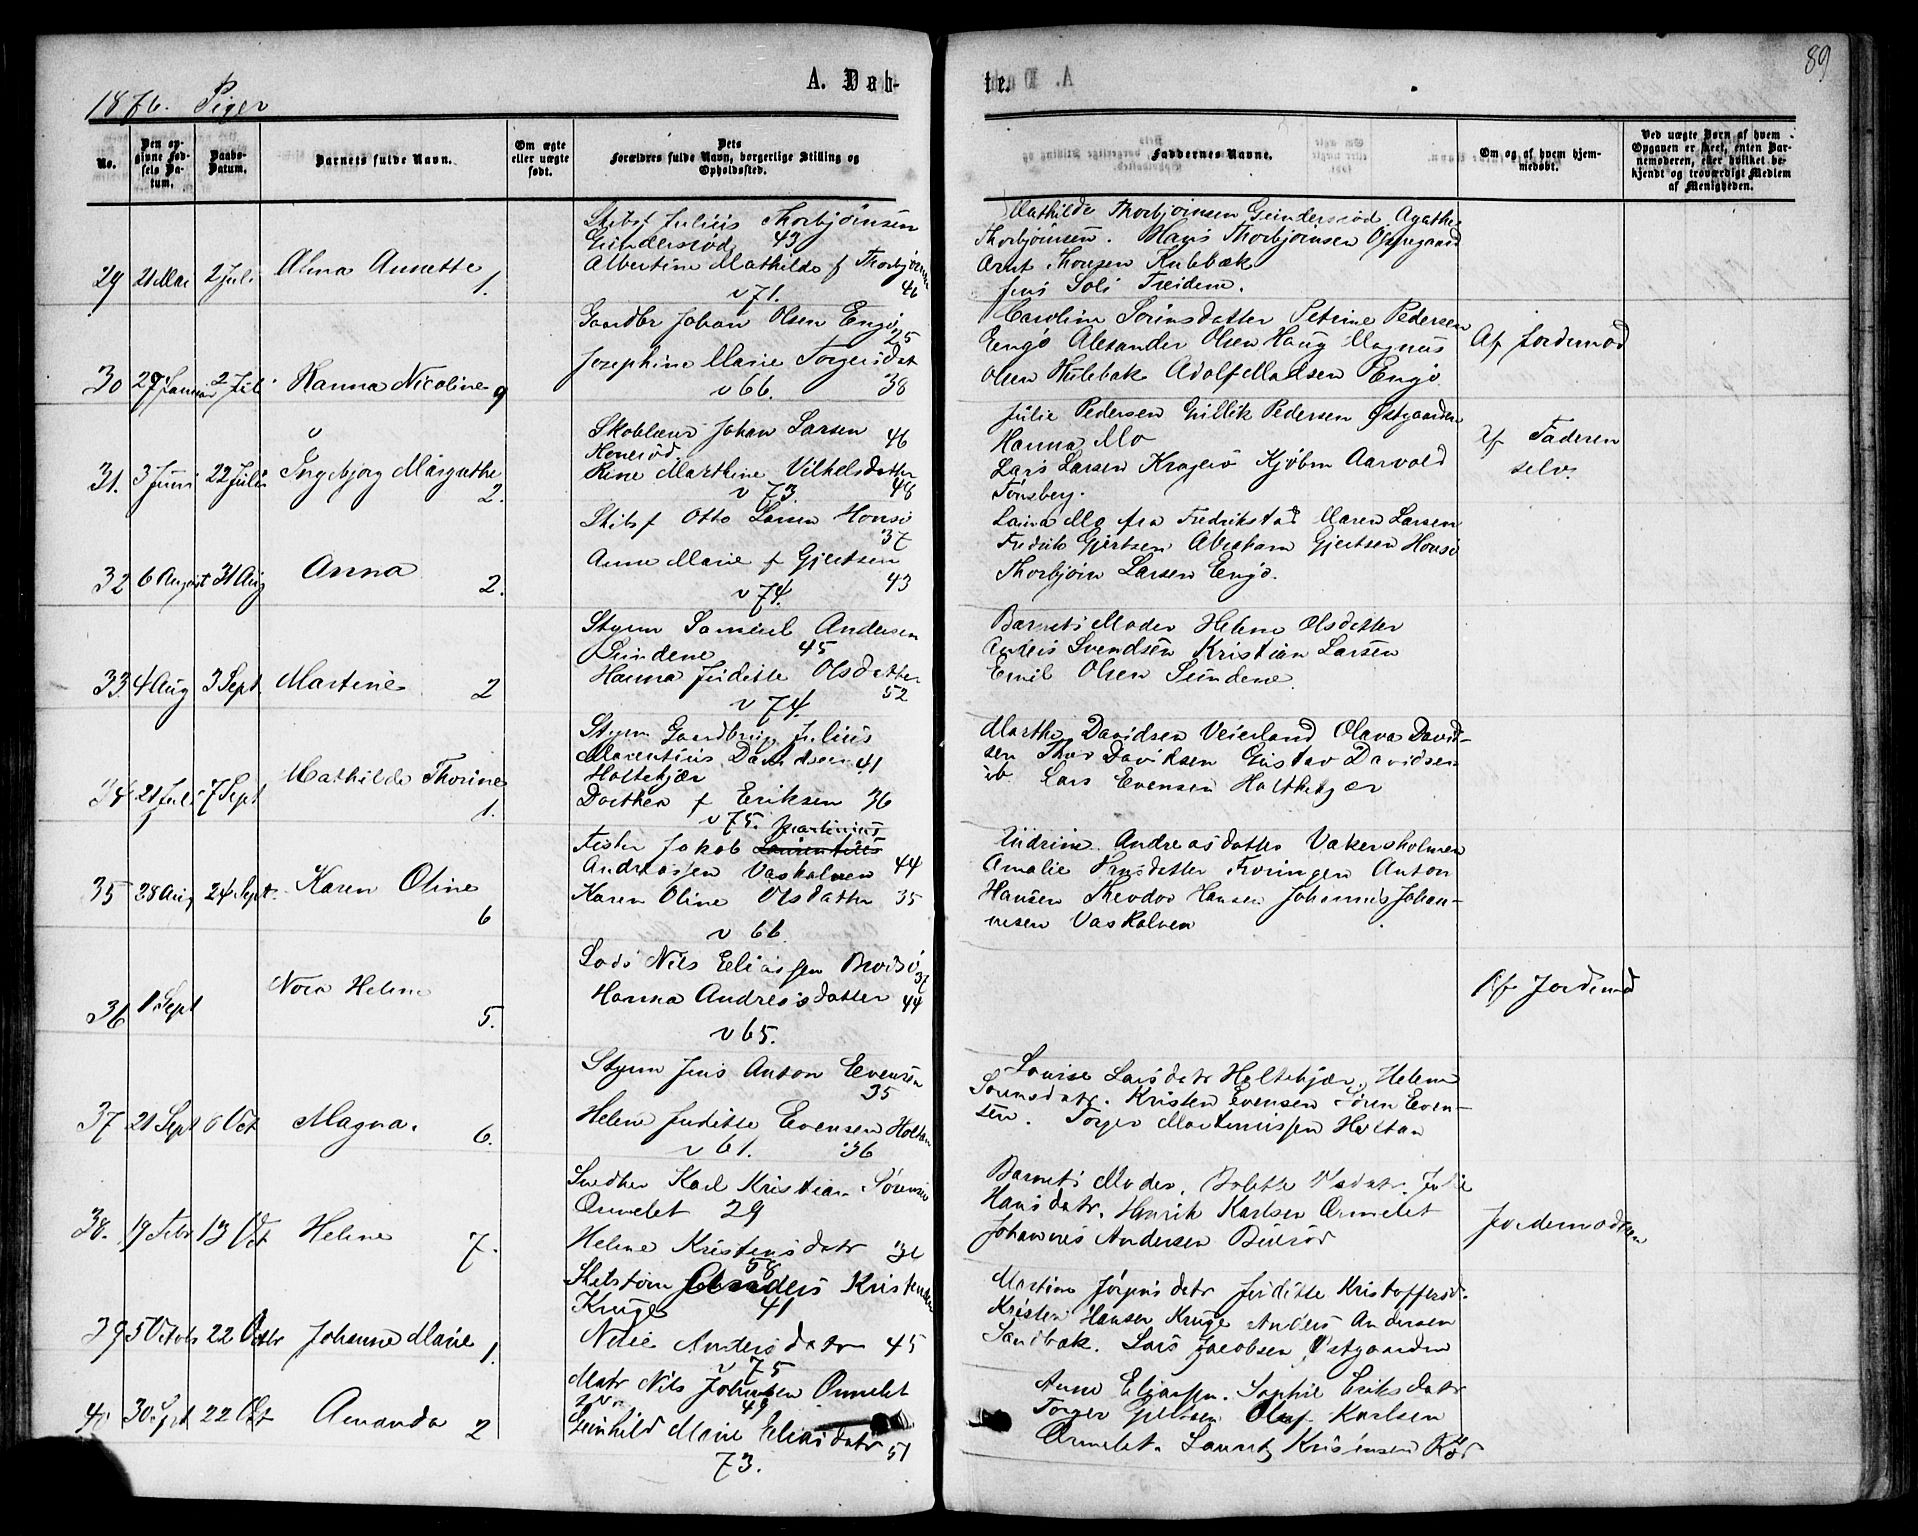 1876. Piger
A. Dåb-
te.
89
No.
Den opgivne Fødsels Datum.
Daabs-Datum.
Barnets fulde Navn.
Om ægte eller uægte født.
Dets Forældres fulde Navn, borgerlige Stilling og Opholdssted.
Faddernes Navne.
Om og af hvem hjemmedøbt.
Ved uægte Børn af hvem Opgaven er skeet, enten Barnemoderen, eller hvilket bekjendt og troværdigt Medlem af Menigheden.
29 21 Mai 2 Juli Alma Annette 1.
Skibsf Julius Thorbjørnsen
Gundersrød 43
Albertine Mathilde f Thorbjørnsen 46
v 71.
Mathilde Thorbjørnsen Gundersrød Agathe
Thorbjørnsen. Hans Thorbjørnsen Østgaard
Arnt Thonsen Kulebæk
Jens Sol
30 27 Januar 2 Juli Hanna Nicoline 9
Gaardbr Johan Olsen Engø 25
Josephine Marie Torgersdat
v 66. 38
Caroline Sørensdatter Petrine Pedersen
Engø Alexander Olsen Haug Magnus
Olsen Hulebak Adolf Madsen Engø
Af Jordemod
31. 3 Juni 22 Juli Ingebjorg Margrethe 2.
Johan Larsen 46
Marthine 48
v 73.
Julie Pedersen Gullik Pedersen Østgaarden
Hanna Mo
Lars Larsen Kragerø Aarvold
Tønsberg.
Af Faderen
selv.
32 6 August 31 Aug Anna 2.
Skibsf Otto Larsen
37
Anne Marie f Gjertsen
v 74. 43
Laura Mo fra Fredrikstad Maren Larsen
Fredrik Gjertsen Abraham Gjertsen
Thorbjørn Larsen Engø.
33 4 Aug 3 Sept Martine 2
Styrm Samuel Andersen
Sundene 45
Hanna Juditte Olsdatter
v 74. 52
Barnets Moder Helene Olsdatter
Svendsen Kristian Larsen
Emil Olsen Sundene
34 21 Juli 7 Sept Mathilde Thorine 1.
Styrm Gaardbrug Julius
Davidsen 41
Holtekjær
Dorthea f Eriksen 36
v 75.
Marthe Davidsen Veierland Olava David-
sen Thor Davidsen Gustav Davidsen
ib Lars Evensen Holtekjær
35 28 Aug 24 Sept. Karen Oline 6
Martinius
Fisker Jakob
Andreassen Vaskalven 44
Karen Oline Olsdatter 35
v 66
Andreasdatter Vakersholmen
Amalie Anton
Hansen Theodor Hansen Johannes Johan-
nesen Vaskalven
36 1 Sept Nora Helene 5.
Lods Nils Eliassen 37
Hanna Andreasdatter 44
v 65.
Af Jordemod
37 21 Sept 6 Oct Magna. 6.
Styrm Jens Anton Evensen
35
Helene Juditte Evensen Holtan
v 61. 36
Louise Larsdatr Holtekjær. Helene
Sørensdatr. Kristen Evensen Søren Even-
sen. Torger Martinussen Holtan
38. 19 Febr 13 Oct Helene 7.
Karl Kristian Sørensen
Ormelet 29
Helene Kristensdatr
58
Barnets Moder. Bolette Olsdatr. Julie
Hansdatr. Henrik Karlsen Ormelet
Johannes Andersen Buerød
Jordemoderen
39 5 Octobr 22 Octbr Johanne Marie 1.
Anders Kristensen
Kruge 41
Andersdatr 45
v 75
Martine Jørgensdatr Juditte Kristoffersd.
Kristen Hansen Kruge Anders Andersen
Sandbak. Lars Jacobsen Østgaarden
40 30 Sept 22 Oct Amanda 2
Matr Nils Johansen Ormelet
49
Gunhild Marie Eliasdatr 51
73.
Anne Eliassen. Sophie Eriksdatr
Torger Gjertsen Oluf Karlsen
Ormelet. Kristensen